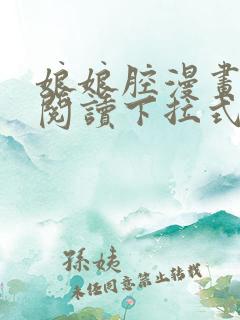 娘娘腔漫畫
閱讀下拉式
孫姨
未任同意禁止转载